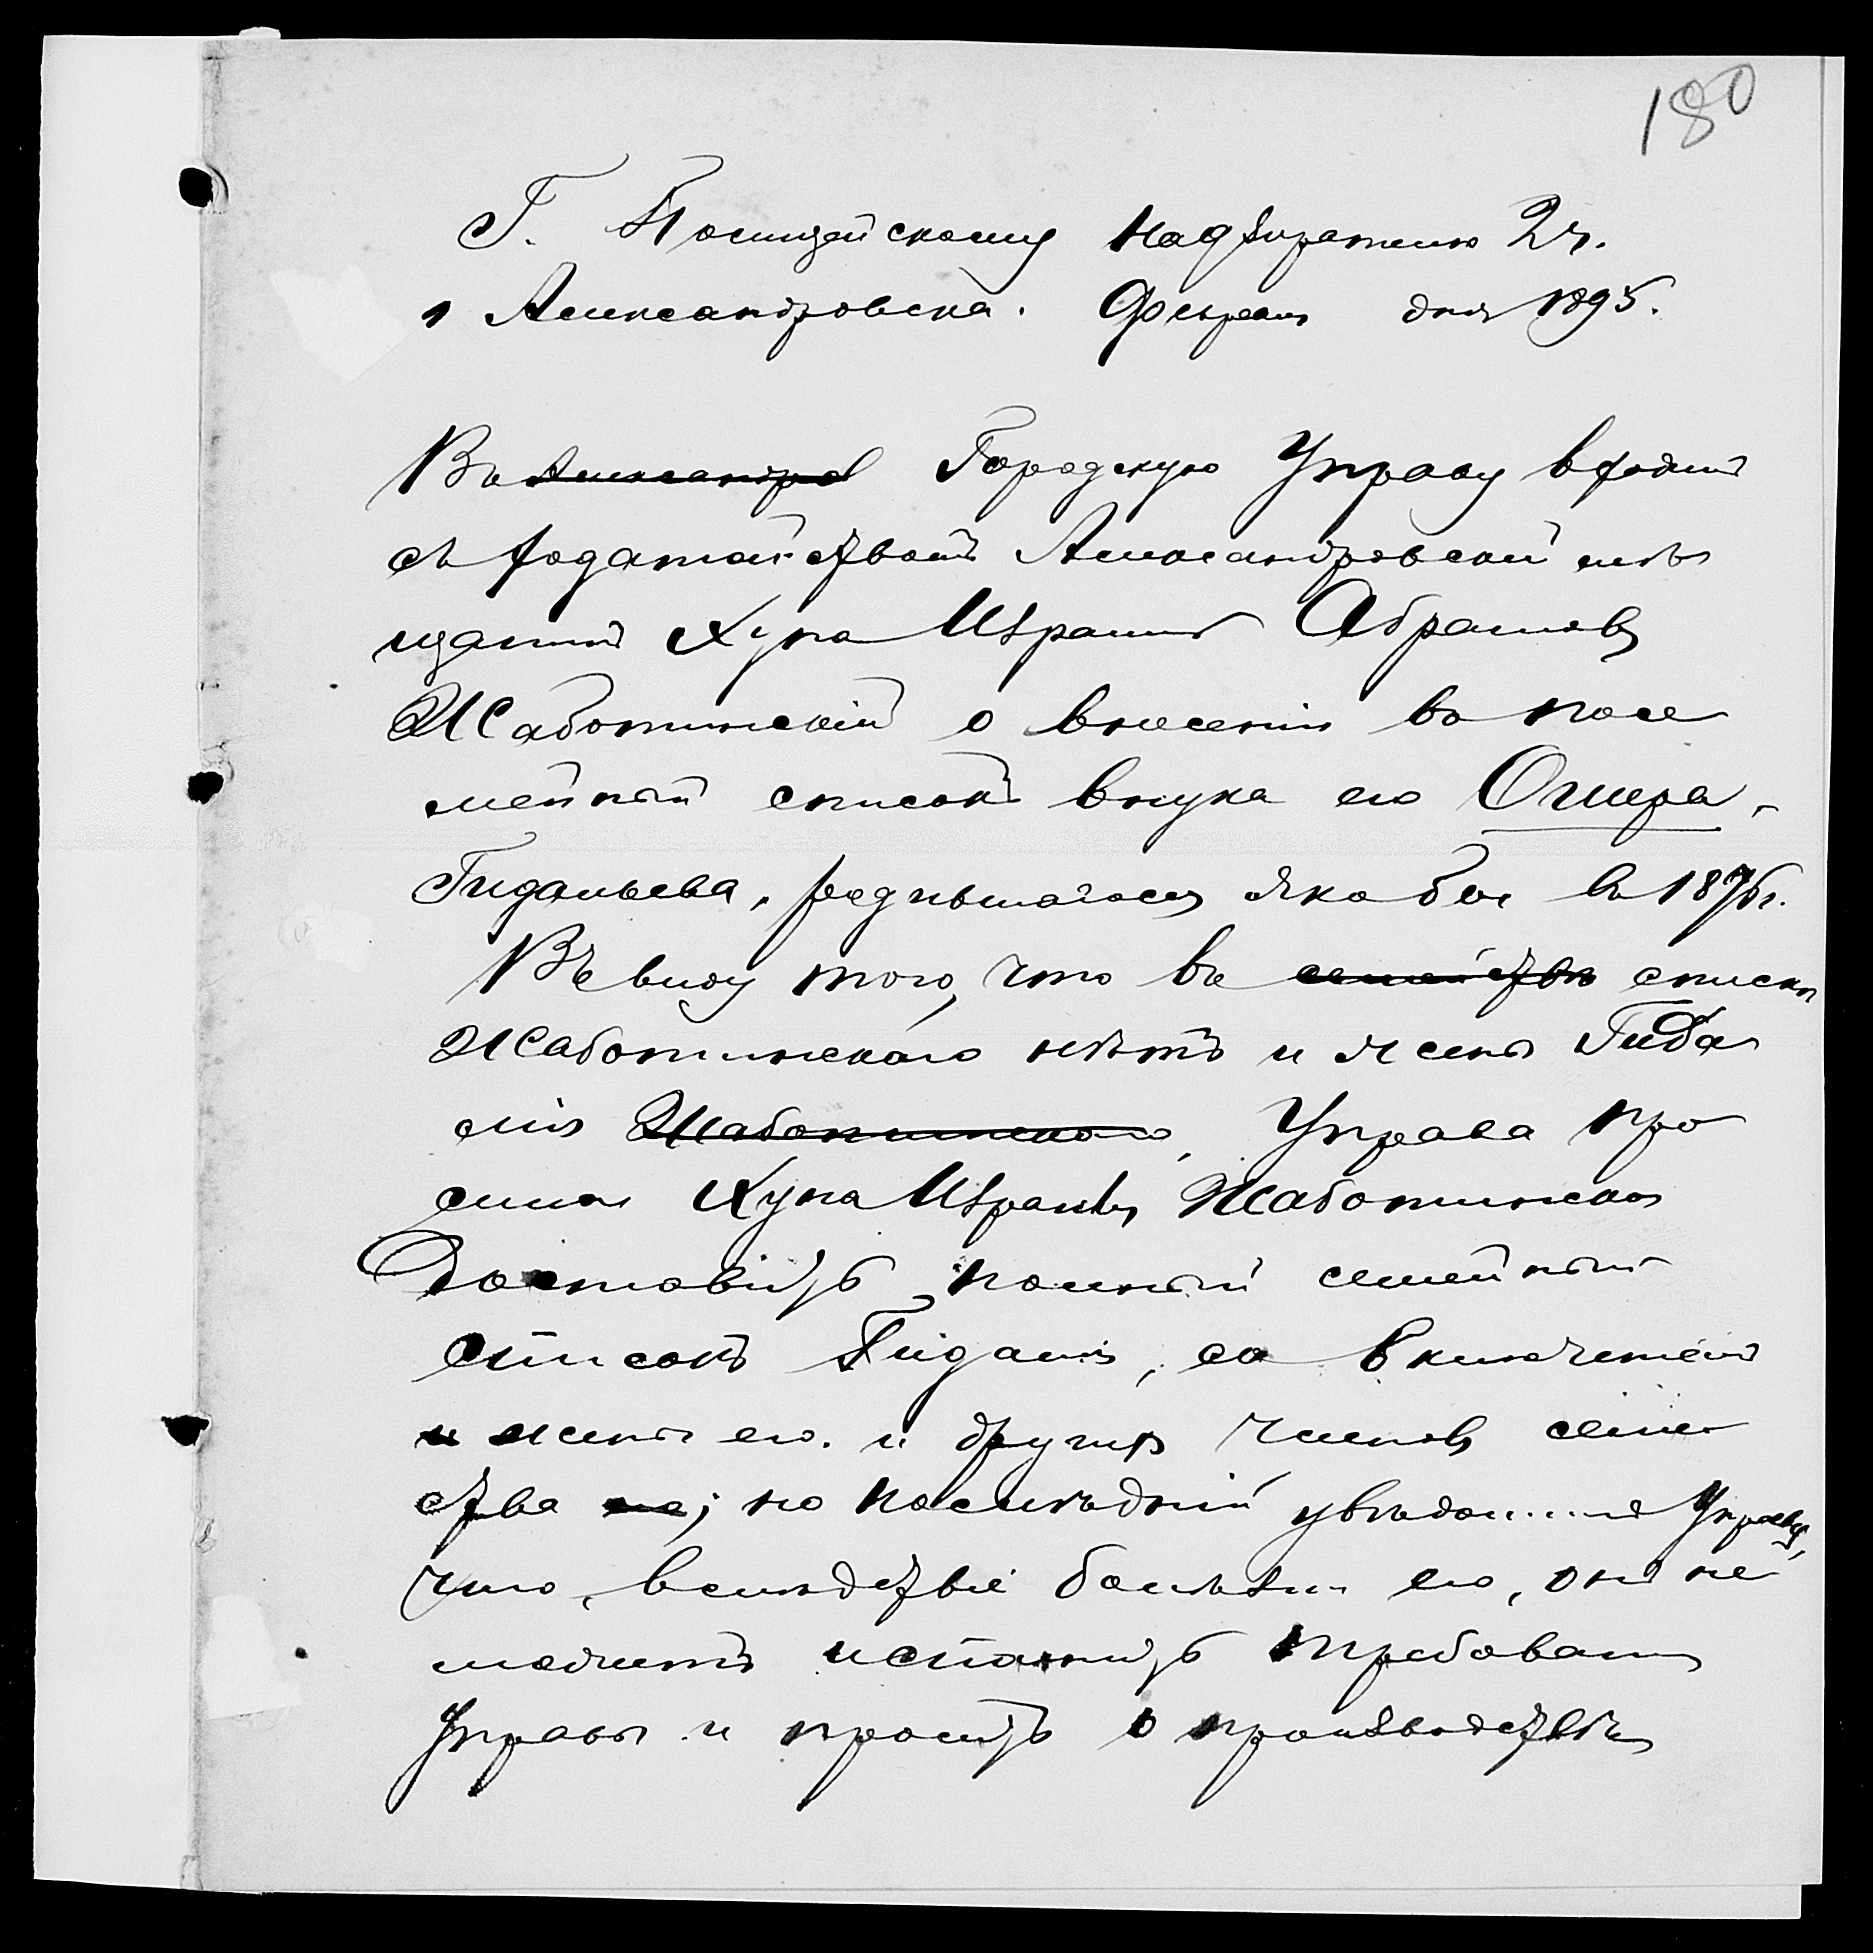 180
Г. Полицейскому Надзирателю 2 ч.
г Александровска. Февраля дня 1895.
Въ Александров Городскую Управу входилъ
съ ходатайствомъ Александровскій мѣ
щанинъ Хуна Израиль Абрамовъ
Жаботинскій о внесеніи въ посе
мейный списокъ внука его Ошера
Гидальева, родившагося якобы въ 1876 г.
Въ виду того, что въ семействѣ спискѣ
Жаботинскаго нѣтъ и жены Гида
лія Жаботинскаго, Управа про
сила Хуна Израиля Жаботинскаго
доставить полный семейный
списокъ Гидалія, со включеніемъ
и жены его и другихъ членовъ семей
ства но послѣдній увѣдомилъ Управу,
что, вслѣдствіе болѣзни его, онъ не
можетъ исполнить требованія
Управы и проситъ о производствѣ